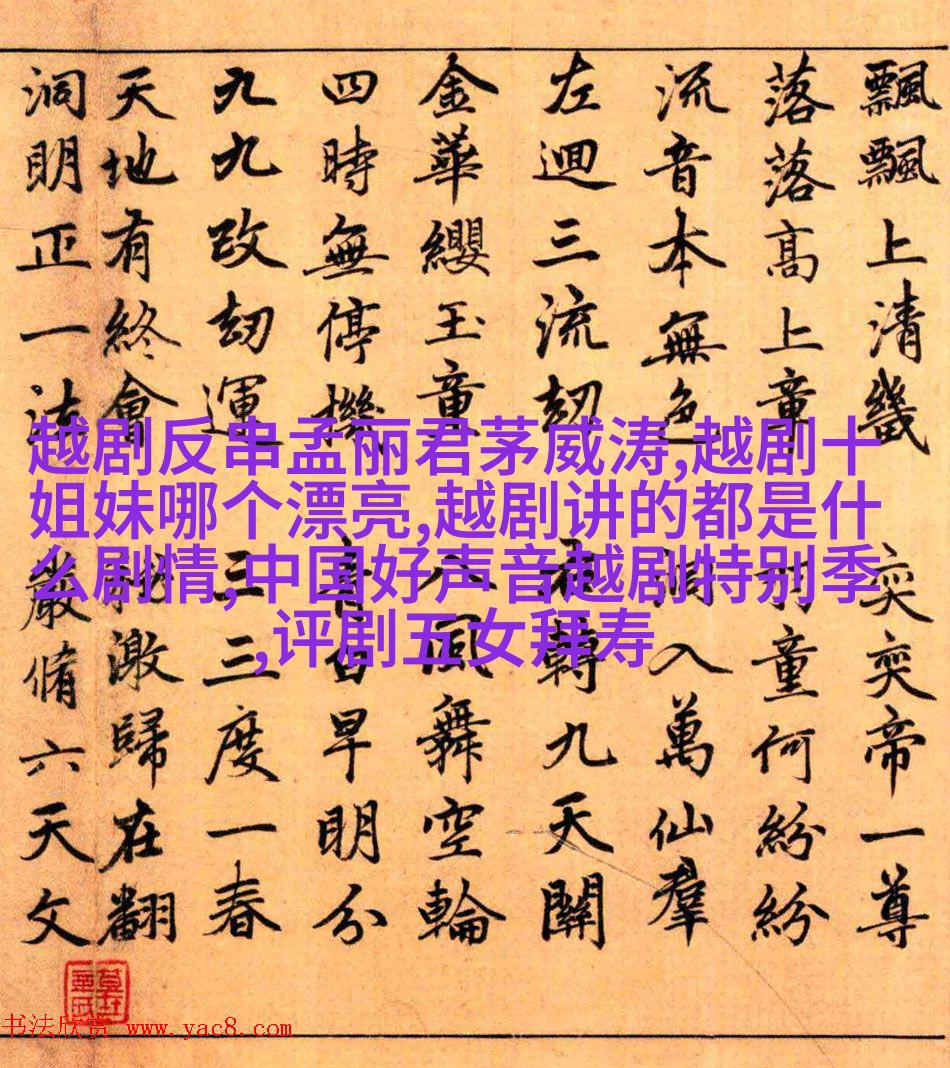 飄飄上清畿 奕奕帝一尊
落落高上童 童何紛紛
流音本無色 洞入萬仙羣
左迴三流刼 轉九天關
金華纓玉童 八風舞空輪
四時無停機 早明分
九九改刼運 三三度一春
天地有終會 激歸在翻
洞明正一法 嚴脩六天文
越剧反串孟丽君茅威涛,越剧十
姐妹哪个漂亮,越剧讲的都是什
么剧情,中国好声音越剧特别季
,评剧五女拜寿
书法欣赏 www.yac8.com